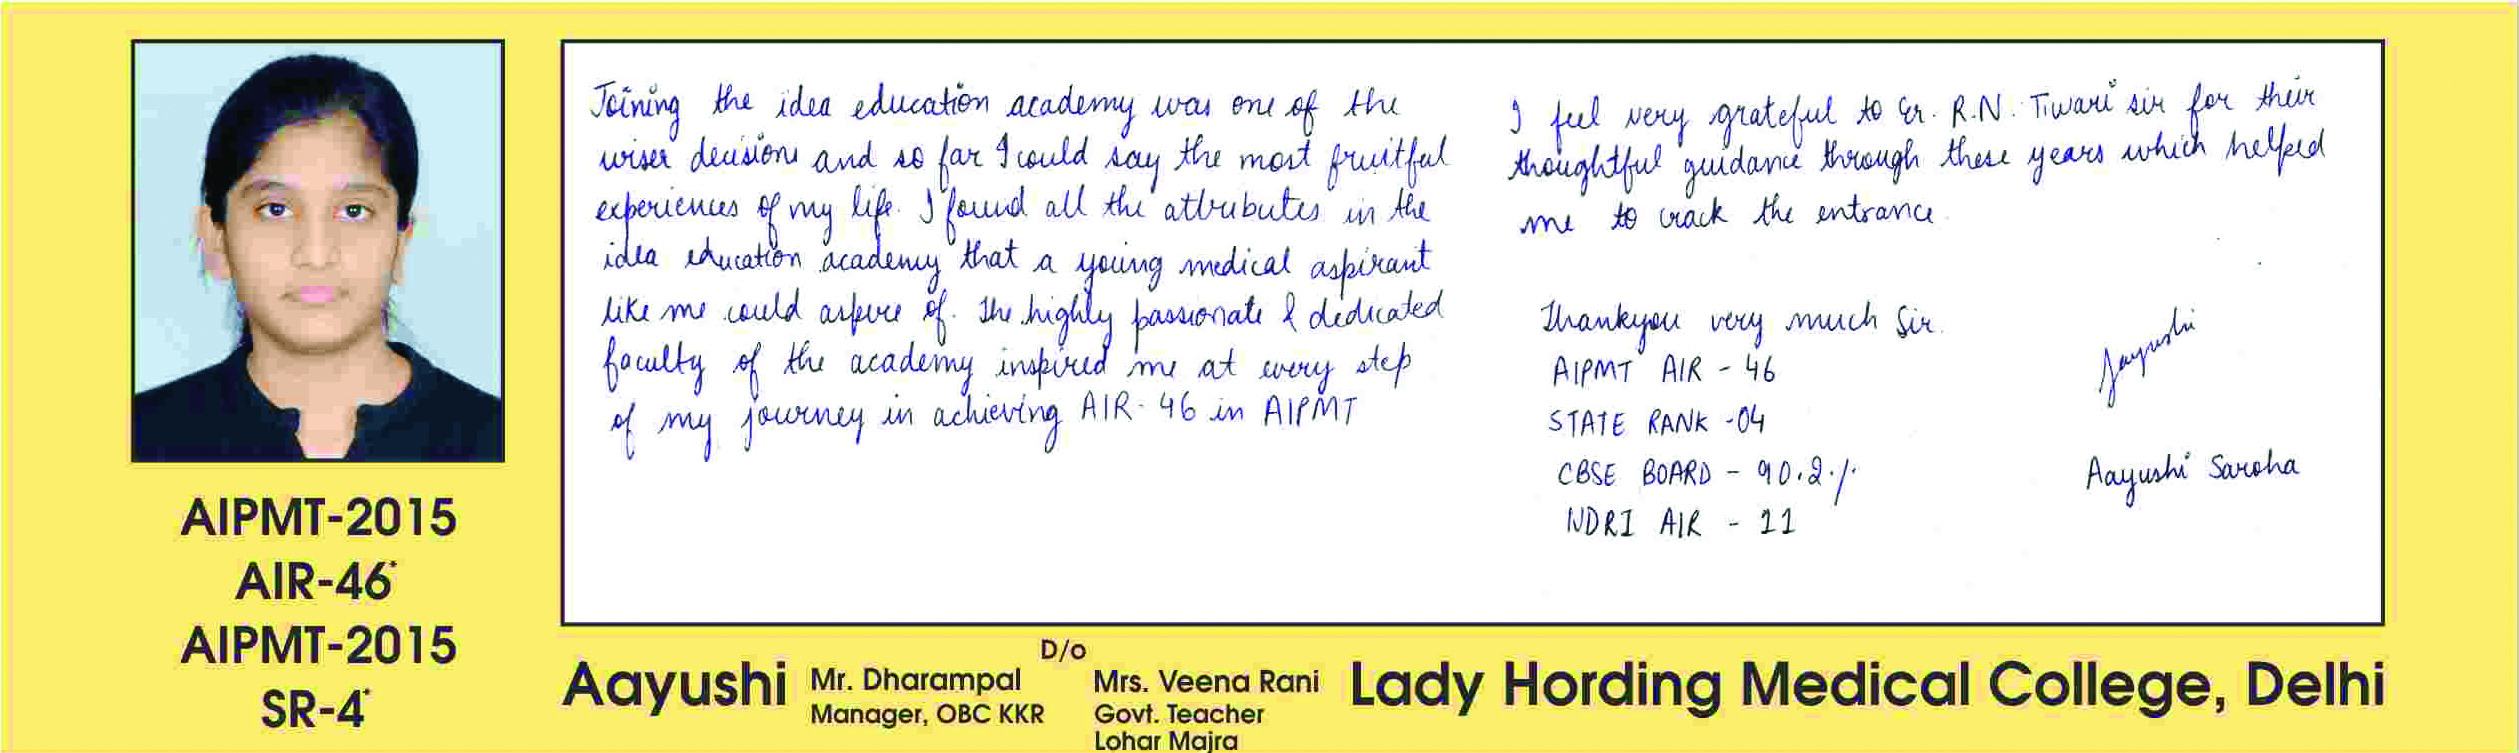 Joining the idea education academy was one of the
wiser decisions and so far I could say the most fruitful
experiences of my life. I found all the attributes in the
idea education academy that a young medical aspirant
like me could aspire of. The highly passionate & dedicated
faculty of the academy inspired me at every step
of my journey in achieving AIR-46 in AIPMT
I feel very grateful to Er. R.N. Tiwari sir for their
thoughtful guidance through these years which helped
me to crack the entrance.
Thankyou very much Sir.
AIPMT AIR - 46
STATE RANK - 04
CBSE BOARD - 90.2%
NDRI AIR - 11
Aayushi
Aayushi Saroha
AIPMT-2015
AIR-46*
AIPMT-2015
SR-4*
Aayushi
D/o
Mr. Dharampal
Manager, OBC KKR
Mrs. Veena Rani
Govt. Teacher
Lohar Majra
Lady Hording Medical College, Delhi